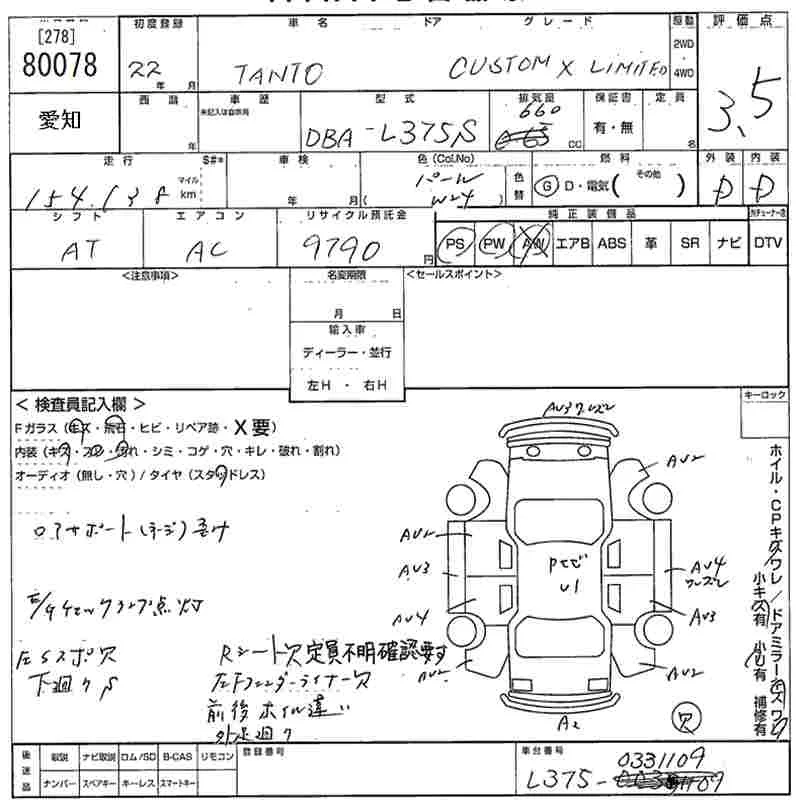 [278]
80078
初度登録
22
年 月
車名 ドア グレード
TANTO CUSTOM X LIMITED
駆動
2WD
・
4WD
評価点
3.5
愛知
西暦
年
車歴
未記入は自家用
型式
DBA-L375S
排気量
660
cc
保証書
有・無
定員
名
走行
154,138
マイル
km
S#*
車検
年 月
色(Col.No)
パール
( W24 )
色替
燃料
G D・電気( その他 )
外装 内装
D D
シフト
AT
エアコン
AC
リサイクル預託金
9790
円
純正装備品
PS PW AW エアB ABS 革 SR ナビ
DTV
<注意事項>
名変期限
月 日
輸入車
ディーラー・並行
左H ・ 右H
<セールスポイント>
キーロック
< 検査員記入欄 >
Fガラス(キズ・飛石・ヒビ・リペア跡・X要)
内装(キズ・スレ・汚れ・シミ・コゲ・穴・キレ・破れ・割れ)
オーディオ(無し・穴)/タイヤ(スタッドレス)
E/Gチェックランプ点灯
左Sスポ欠
下廻りS
Rシート欠定員不明確認要す
左Fフェンダーライナー欠
前後ホイル違い
AU3ワレズレ
AU2
AU2
AU3
AU4
AU2
AU4
ワレズレ
AU3
AU2
U1
A2
欠
ホイル・CPキズワレ/ドアミラーキズワレ
小キズ有 小U有 補修有
後送品
取説 ナビ取説 ロム/SD B-CAS リモコン
ナンバー スペアキー キーレス スマートキー
登録番号
車台番号
0331109
L375-